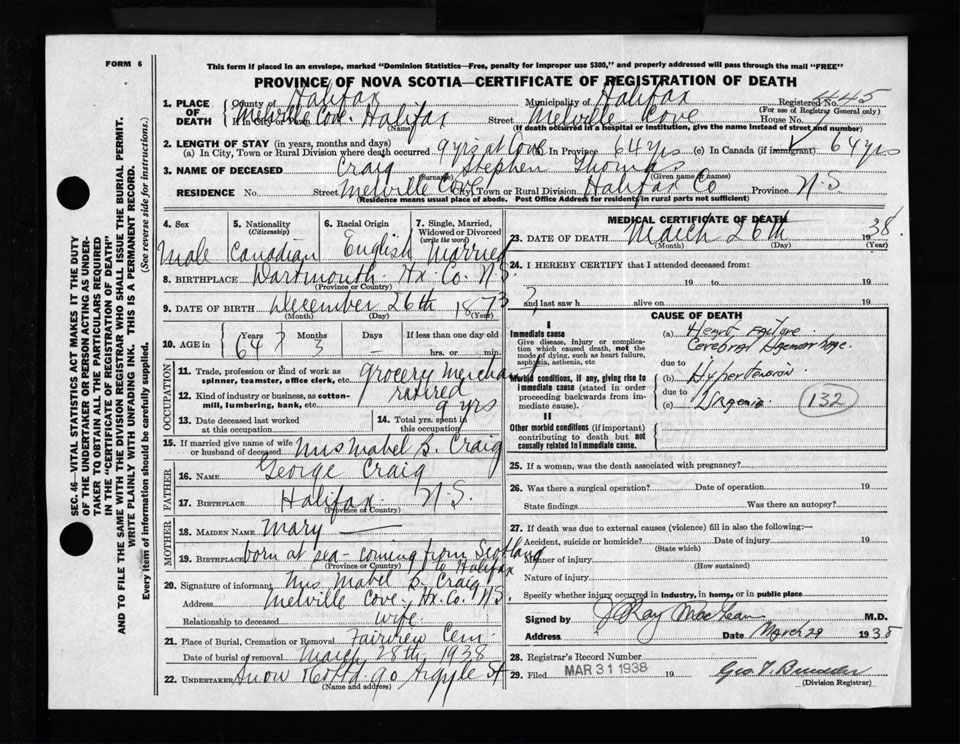 FORM 6
This form if placed in an envelope, marked "Dominion Statistics—Free, penalty for improper use $300," and properly addressed will pass through the mail "FREE"
PROVINCE OF NOVA SCOTIA—CERTIFICATE OF REGISTRATION OF DEATH
1. PLACE OF DEATH County of Halifax Municipality of Halifax Registered No. 445
(For use of Registrar General only)
If in City or Town Melville Cove Halifax Street Melville Cove House No.
(Name) (If death occurred in a hospital or institution, give the name instead of street and number)
2. LENGTH OF STAY (in years, months and days)
(a) In City, Town or Rural Division where death occurred 9 yrs at Cove (b) In Province 64 yrs (c) In Canada (if immigrant) 64 yrs
3. NAME OF DECEASED Craig Stephen Thomas
(Surname) (Given name or names)
RESIDENCE No. Street Melville Cove City, Town or Rural Division Halifax Co Province N.S.
(Residence means usual place of abode. Post Office Address for residents in rural parts not sufficient)
4. Sex Male
5. Nationality (Citizenship) Canadian
6. Racial Origin English
7. Single, Married, Widowed or Divorced (write the word) Married
8. BIRTHPLACE Dartmouth Hx. Co. N.S.
(Province or Country)
9. DATE OF BIRTH December 26th 1873
(Month) (Day) (Year)
10. AGE in Years 64 Months 3 Days — If less than one day old hrs. or min.
OCCUPATION
11. Trade, profession or kind of work as spinner, teamster, office clerk, etc. Grocery Merchant
12. Kind of industry or business, as cotton-mill, lumbering, bank, etc. retired
13. Date deceased last worked at this occupation
14. Total yrs. spent in this occupation 9 yrs
15. If married give name of wife or husband of deceased Mrs Mabel S. Craig
FATHER
16. NAME George Craig
17. BIRTHPLACE Halifax N.S.
(Province or Country)
MOTHER
18. MAIDEN NAME Mary —
19. BIRTHPLACE born at sea - coming from Scotland to Halifax
(Province or Country)
20. Signature of informant Mrs Mabel S. Craig
Address Melville Cove. Hx. Co. N.S.
Relationship to deceased wife.
21. Place of Burial, Cremation or Removal Fairview Cem.
Date of burial or removal March 28th 1938
22. UNDERTAKER Snow 90 Argyle St
(Name and address)
MEDICAL CERTIFICATE OF DEATH
23. DATE OF DEATH March 26th 1938.
(Month) (Day) (Year)
24. I HEREBY CERTIFY that I attended deceased from:
19 to 19
and last saw h alive on 19
CAUSE OF DEATH
I
Immediate cause
Give disease, injury or complication which caused death, not the mode of dying, such as heart failure, asphyxia, asthenia, etc
(a) Heart Failure.
Cerebral Haemorrhage.
due to
Morbid conditions, if any, giving rise to immediate cause (stated in order proceeding backwards from immediate cause).
(b) Hypertension
due to
(c) Uraemia
132
II
Other morbid conditions (if important) contributing to death but not causally related to immediate cause.
25. If a woman, was the death associated with pregnancy?
26. Was there a surgical operation? Date of operation 19
State findings Was there an autopsy?
27. If death was due to external causes (violence) fill in also the following:—
Accident, suicide or homicide? Date of injury 19
(State which)
Manner of injury
(How sustained)
Nature of injury
Specify whether injury occurred in industry, in home, or in public place
Signed by J Ray MacLean M.D.
Address Date March 29 1938
28. Registrar's Record Number
29. Filed MAR 31 1938 19
(Division Registrar)
SEC. 46—VITAL STATISTICS ACT MAKES IT THE DUTY
OF THE UNDERTAKER OR PERSON ACTING AS UNDER-
TAKER TO OBTAIN ALL THE PARTICULARS REQUIRED
IN THE "CERTIFICATE OF REGISTRATION OF DEATH"
AND TO FILE THE SAME WITH THE DIVISION REGISTRAR WHO SHALL ISSUE THE BURIAL PERMIT.
WRITE PLAINLY WITH UNFADING INK. THIS IS A PERMANENT RECORD.
Every item of information should be carefully supplied. (See reverse side for instructions.)